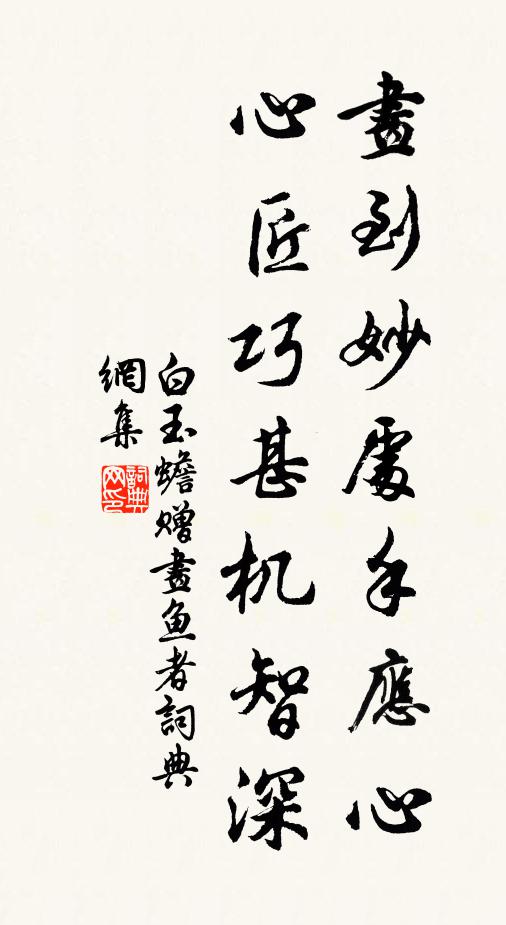 畫到妙處手應心
心匠巧甚机智深
白玉蟾贈畫魚者詞典
網集
詞典
网印